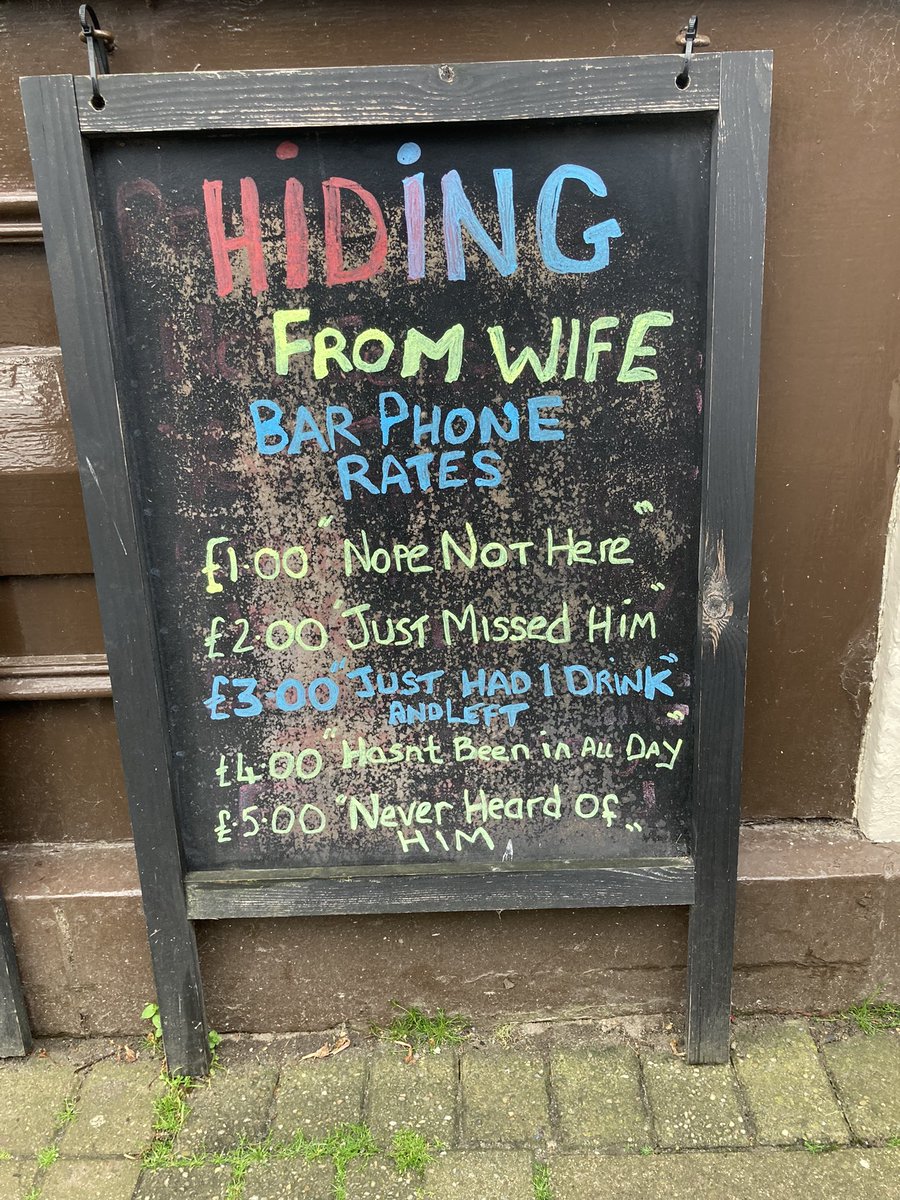 HiDiNG
FROM WIFE
BAR PHONE
RATES
£1.00 "Nope Not Here"
£2.00 "Just Missed Him"
£3.00 "JUST HAD 1 DRiNK"
AND LEFT
£4.00 "Hasnt Been in All Day"
£5.00 "Never Heard of"
HiM